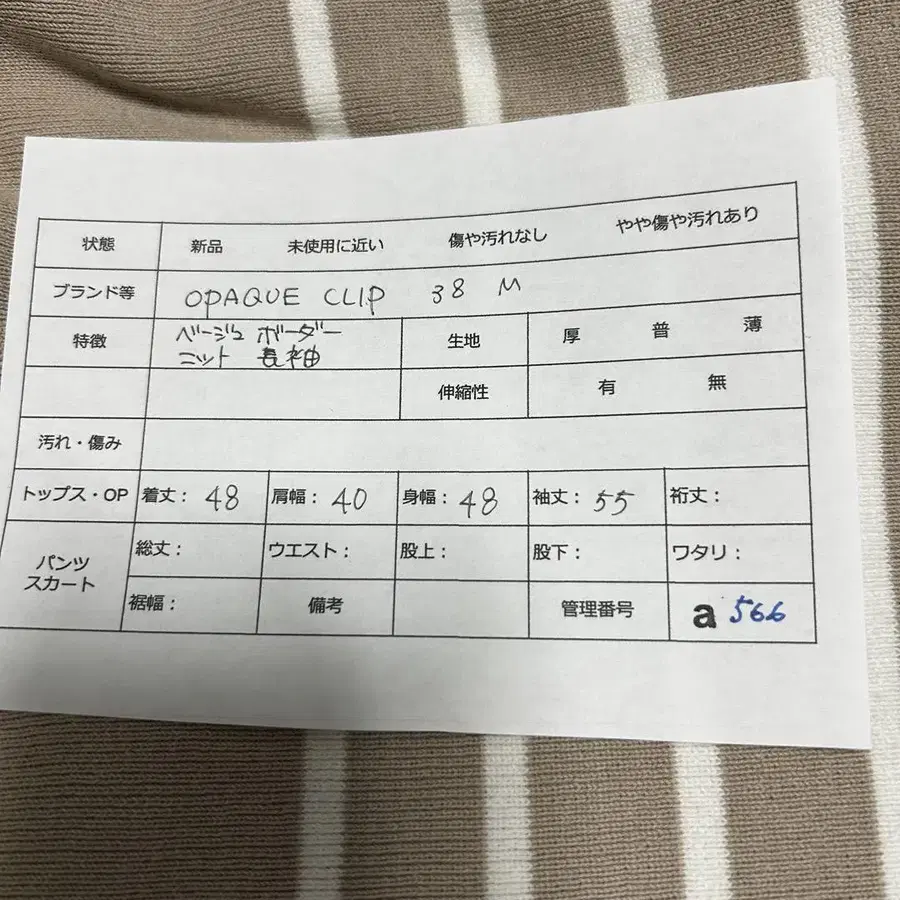 状態 新品 未使用に近い 傷や汚れなし やや傷や汚れあり
ブランド等 OPAQUE CLIP 38 M
特徴 ベージュ ボーダー 生地 厚 普 薄
ニット 長袖
伸縮性 有 無
汚れ・傷み
トップス・OP 着丈： 48 肩幅： 40 身幅： 48 袖丈： 55 裄丈：
パンツ 総丈： ウエスト： 股上： 股下： ワタリ：
スカート
裾幅： 備考 管理番号 a 566